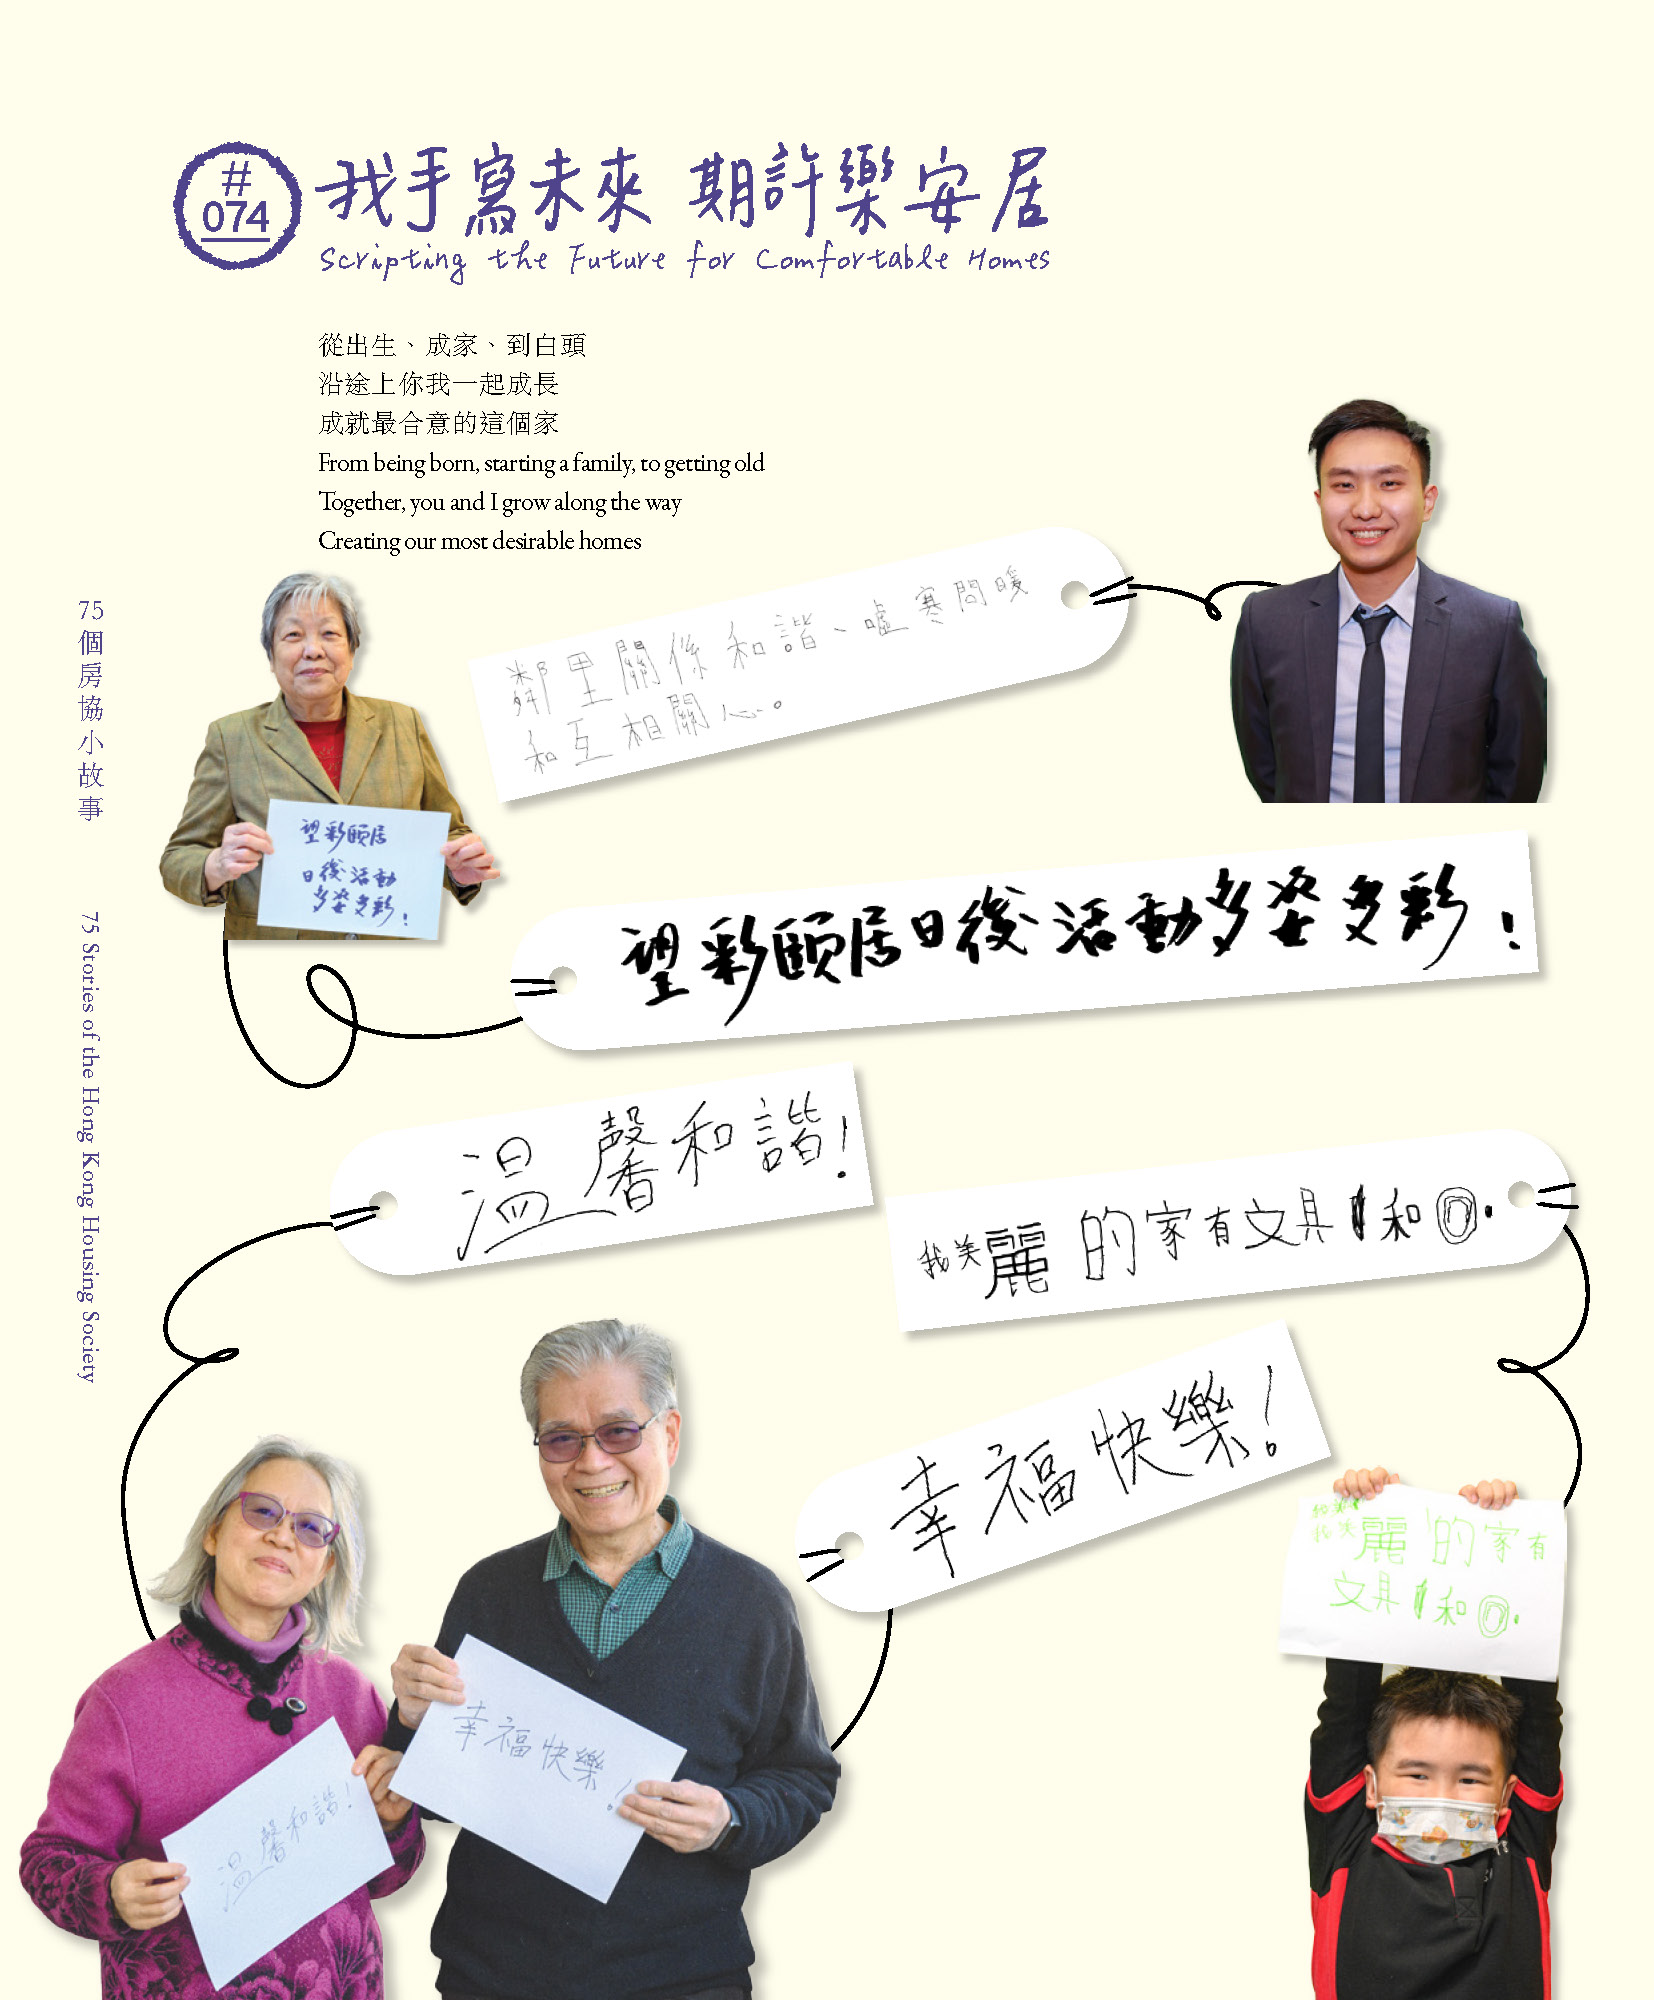 #
074
我手寫未來 期許樂安居
Scripting the Future for Comfortable Homes
從出生、成家、到白頭
沿途上你我一起成長
成就最合意的這個家
From being born, starting a family, to getting old
Together, you and I grow along the way
Creating our most desirable homes
75個房協小故事
75 Stories of the Hong Kong Housing Society
鄰里關係和諧、噓寒問暖
和互相關心。
望彩頤居
日後活動
多姿多彩!
望彩頤居日後活動多姿多彩!
溫馨和諧!
我美麗的家有文具和
幸福快樂!
我美麗的家有
文具和
幸福快樂!
溫馨和諧!